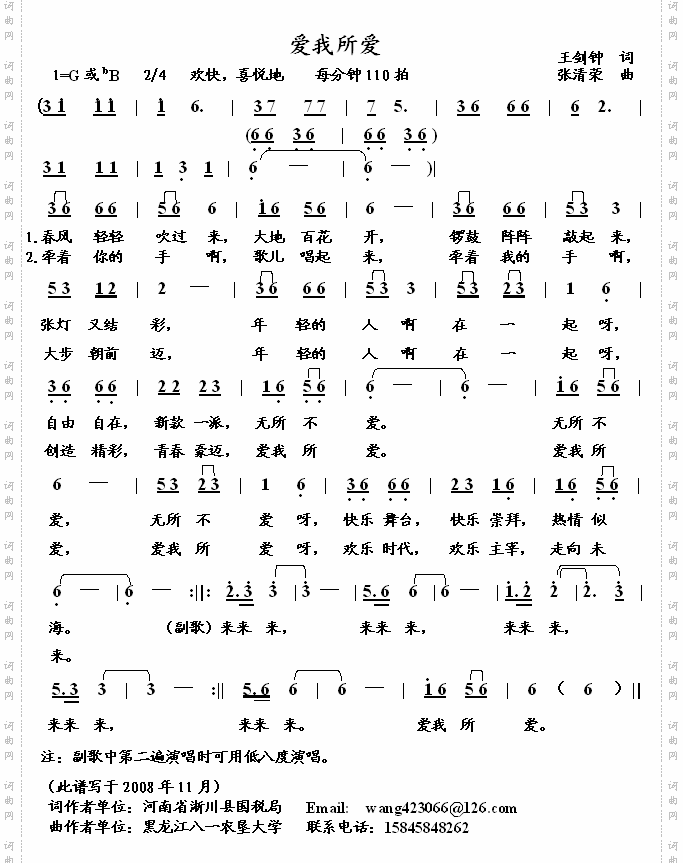 爱我所爱
王剑钟 词
1=G 或 bB 2/4 欢快，喜悦地 每分钟 110 拍 张清荣 曲
(3 1 1 1 | 1 6. | 3 7 7 7 | 7 5. | 3 6 6 6 | 6 2. |
(6 6 3 6 | 6 6 3 6 )
3 1 1 1 | 1 3 1 | 6 — | 6 — )|
3 6 6 6 | 5 6 6 | 1 6 5 6 | 6 — | 3 6 6 6 | 5 3 3 |
1.春风 轻轻 吹过 来， 大地 百花 开， 锣鼓 阵阵 敲起 来，
2.牵着 你的 手 啊， 歌儿 唱起 来， 牵着 我的 手 啊，
5 3 1 2 | 2 — | 3 6 6 6 | 5 3 3 | 5 3 2 3 | 1 6 |
张灯 又结 彩， 年 轻的 人 啊 在 一 起 呀，
大步 朝前 迈， 年 轻的 人 啊 在 一 起 呀，
3 6 6 6 | 2 2 2 3 | 1 6 5 6 | 6 — | 6 — | 1 6 5 6 |
自由 自在， 新款 一派， 无所 不 爱。 无所 不
创造 精彩， 青春 豪迈， 爱我 所 爱。 爱我 所
6 — | 5 3 2 3 | 1 6 | 3 6 6 6 | 2 3 1 6 | 1 6 5 6 |
爱， 无所 不 爱 呀， 快乐 舞台， 快乐 崇拜， 热情 似
爱， 爱我 所 爱 呀， 欢乐 时代， 欢乐 主宰， 走向 未
6 — | 6 — :||: 2. 3 3 | 3 — | 5. 6 6 | 6 — | 1. 2 2 | 2. 3 |
海。 （副歌）来来 来， 来来 来， 来来 来，
来。
5. 3 3 | 3 — :|| 5. 6 6 | 6 — | 1 6 5 6 | 6 （ 6 ）||
来来 来， 来来 来。 爱我 所 爱。
注：副歌中第二遍演唱时可用低八度演唱。
（此谱写于 2008 年 11 月）
词作者单位：河南省淅川县国税局 Email: wang423066@126.com
曲作者单位：黑龙江八一农垦大学 联系电话：15845848262